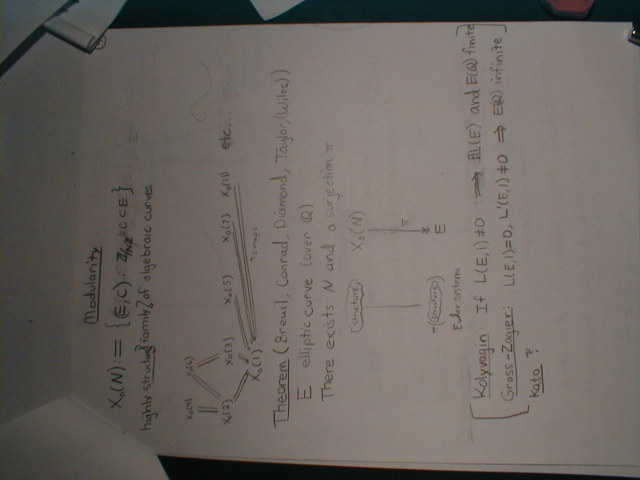 Modularity
X₀(N) := {(E,C): Z/NZ ≅ C ⊂ E}
highly structured family of algebraic curves
X₀(4) X₀(6)
X₀(2) X₀(3) X₀(5) X₀(7) X₀(11) etc...
X₀(1)
Theorem (Breuil, Conrad, Diamond, Taylor, (Wiles))
E elliptic curve (over Q)
There exists N and a surjection π
structure X₀(N)
π
E
Euler systems
Kolyvagin If L(E,1)≠0 ⟹ Ш(E) and E(Q) finite
Gross-Zagier: L(E,1)=0, L'(E,1)≠0 ⟹ E(Q) infinite
Kato ?